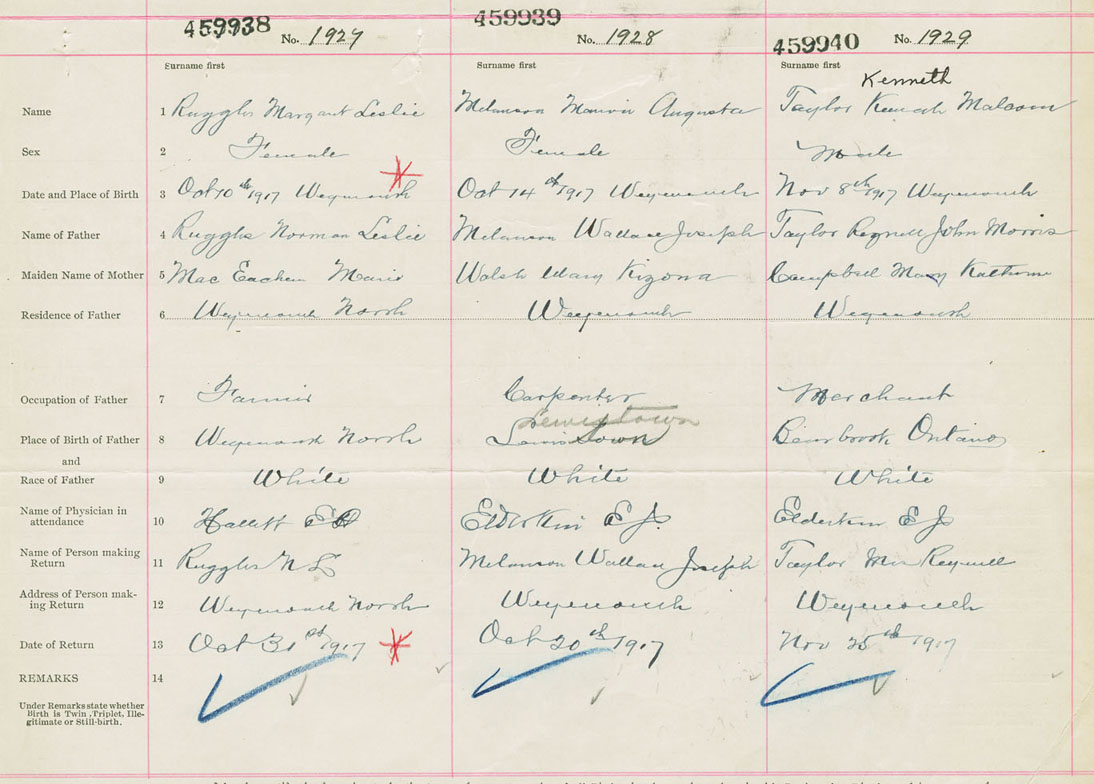 459938 No. 1927 459939 No. 1928 459940 No. 1929
Surname first Surname first Surname first
Kenneth
Name 1 Ruggles Margaret Leslie Melanson Augusta Taylor Malcom
Sex 2 Female Female Male
Date and Place of Birth 3 Oct 10th 1917 Weymouth Oct 14th 1917 Weymouth Nov 8th 1917 Weymouth
Name of Father 4 Ruggles Norman Leslie Melanson Wallace Joseph Taylor John Morris
Maiden Name of Mother 5 Mac Eachern Marie Walsh Mary Kizona Campbell Mary
Residence of Father 6 Weymouth North Weymouth Weymouth
Occupation of Father 7 Farmer Carpenter Merchant
Lewistown
Place of Birth of Father 8 Weymouth North Lewistown Bearbrook Ontario
and
Race of Father 9 White White White
Name of Physician in
attendance 10 Hallett E Elderkin E J Elderkin E J
Name of Person making
Return 11 Ruggles N L Melanson Wallace Joseph Taylor Mrs
Address of Person mak-
ing Return 12 Weymouth North Weymouth Weymouth
Date of Return 13 Oct 31st 1917 Oct 20th 1917 Nov 25th 1917
REMARKS 14
Under Remarks state whether
Birth is Twin, Triplet, Ille-
gitimate or Still-birth.